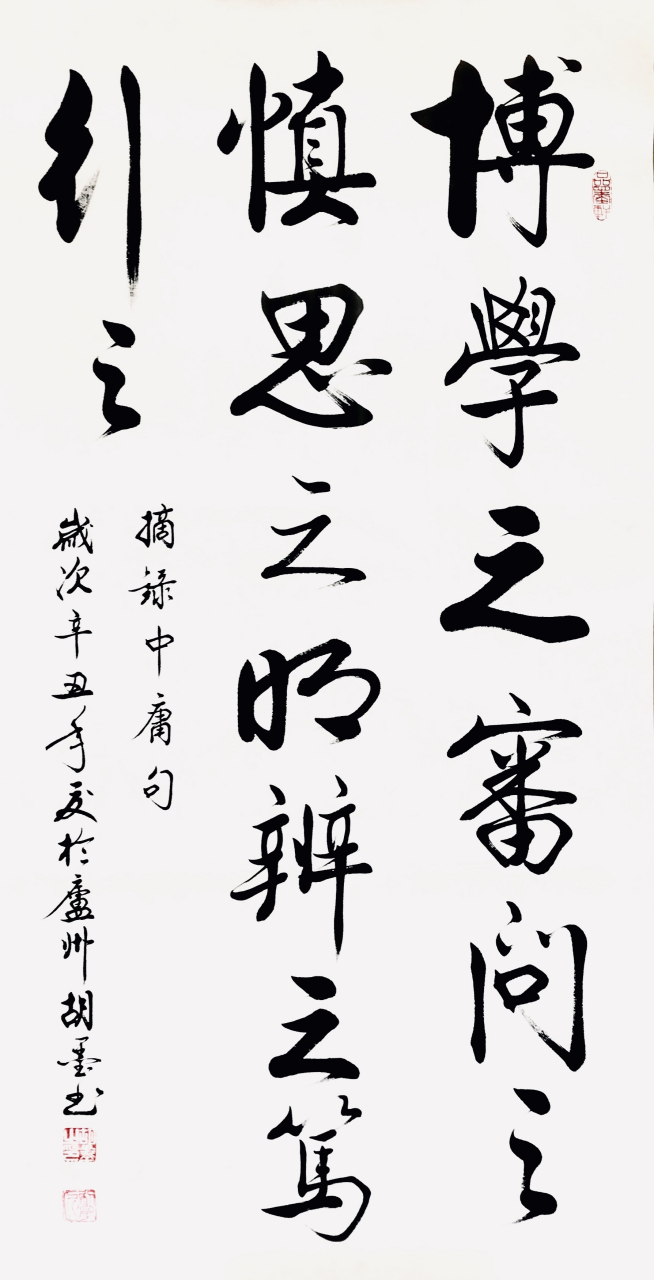 博學之審問之
慎思之明辨之篤
行之
摘録中庸句
歲次辛丑年夏於廬州胡墨书